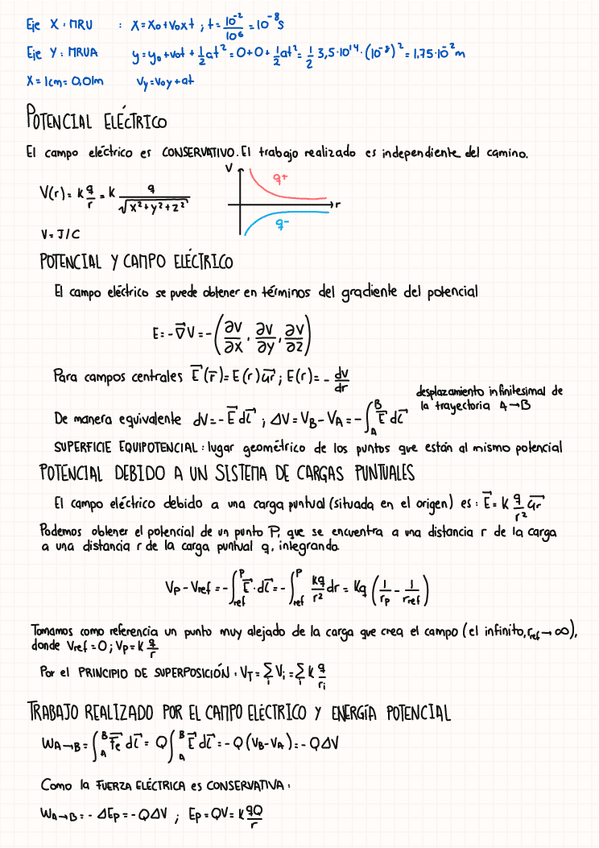 Eje X: MRU : x=x₀+v₀xt ; t=10⁻²/10⁶=10⁻⁸s
Eje Y: MRUA y=y₀+v₀t+½at²=0+0+½at²=½ 3,5·10¹⁴·(10⁻⁸)²=1,75·10⁻²m
X=1cm=0,01m Vy=V₀y+at
POTENCIAL ELÉCTRICO
El campo eléctrico es CONSERVATIVO. El trabajo realizado es independiente del camino.
V(r)=k q/r = k q/√(x²+y²+z²)
V
q+
r
q-
V=J/C
POTENCIAL Y CAMPO ELÉCTRICO
El campo eléctrico se puede obtener en términos del gradiente del potencial
E=-∇⃗V=-(∂V/∂x, ∂V/∂y, ∂V/∂z)
Para campos centrales E⃗(r⃗)=E(r)u⃗r ; E(r)=-dv/dr
desplazamiento infinitesimal de
la trayectoria A→B
De manera equivalente dV=-E⃗dl⃗ ; ΔV=V_B-V_A=-∫_A^B E⃗dl⃗
SUPERFICIE EQUIPOTENCIAL: lugar geométrico de los puntos que están al mismo potencial
POTENCIAL DEBIDO A UN SISTEMA DE CARGAS PUNTUALES
El campo eléctrico debido a una carga puntual (situada en el origen) es: E⃗=k q/r² u⃗r
Podemos obtener el potencial de un punto P, que se encuentra a una distancia r de la carga
a una distancia r de la carga puntual q, integrando.
Vp-Vref=-∫_ref^P E⃗·dl⃗=-∫_ref^P kq/r² dr=kq(1/rp - 1/rref)
Tomamos como referencia un punto muy alejado de la carga que crea el campo (el infinito, rref→∞),
donde Vref=0; Vp=k q/r
Por el PRINCIPIO DE SUPERPOSICIÓN: V_T=∑_i Vi=∑_i k q/ri
TRABAJO REALIZADO POR EL CAMPO ELÉCTRICO Y ENERGÍA POTENCIAL
W_A→B=∫_A^B F⃗e dl⃗=Q∫_A^B E⃗ dl⃗=-Q(V_B-V_A)=-QΔV
Como la FUERZA ELÉCTRICA es CONSERVATIVA:
W_A→B=-ΔEp=-QΔV ; Ep=QV=k qQ/r